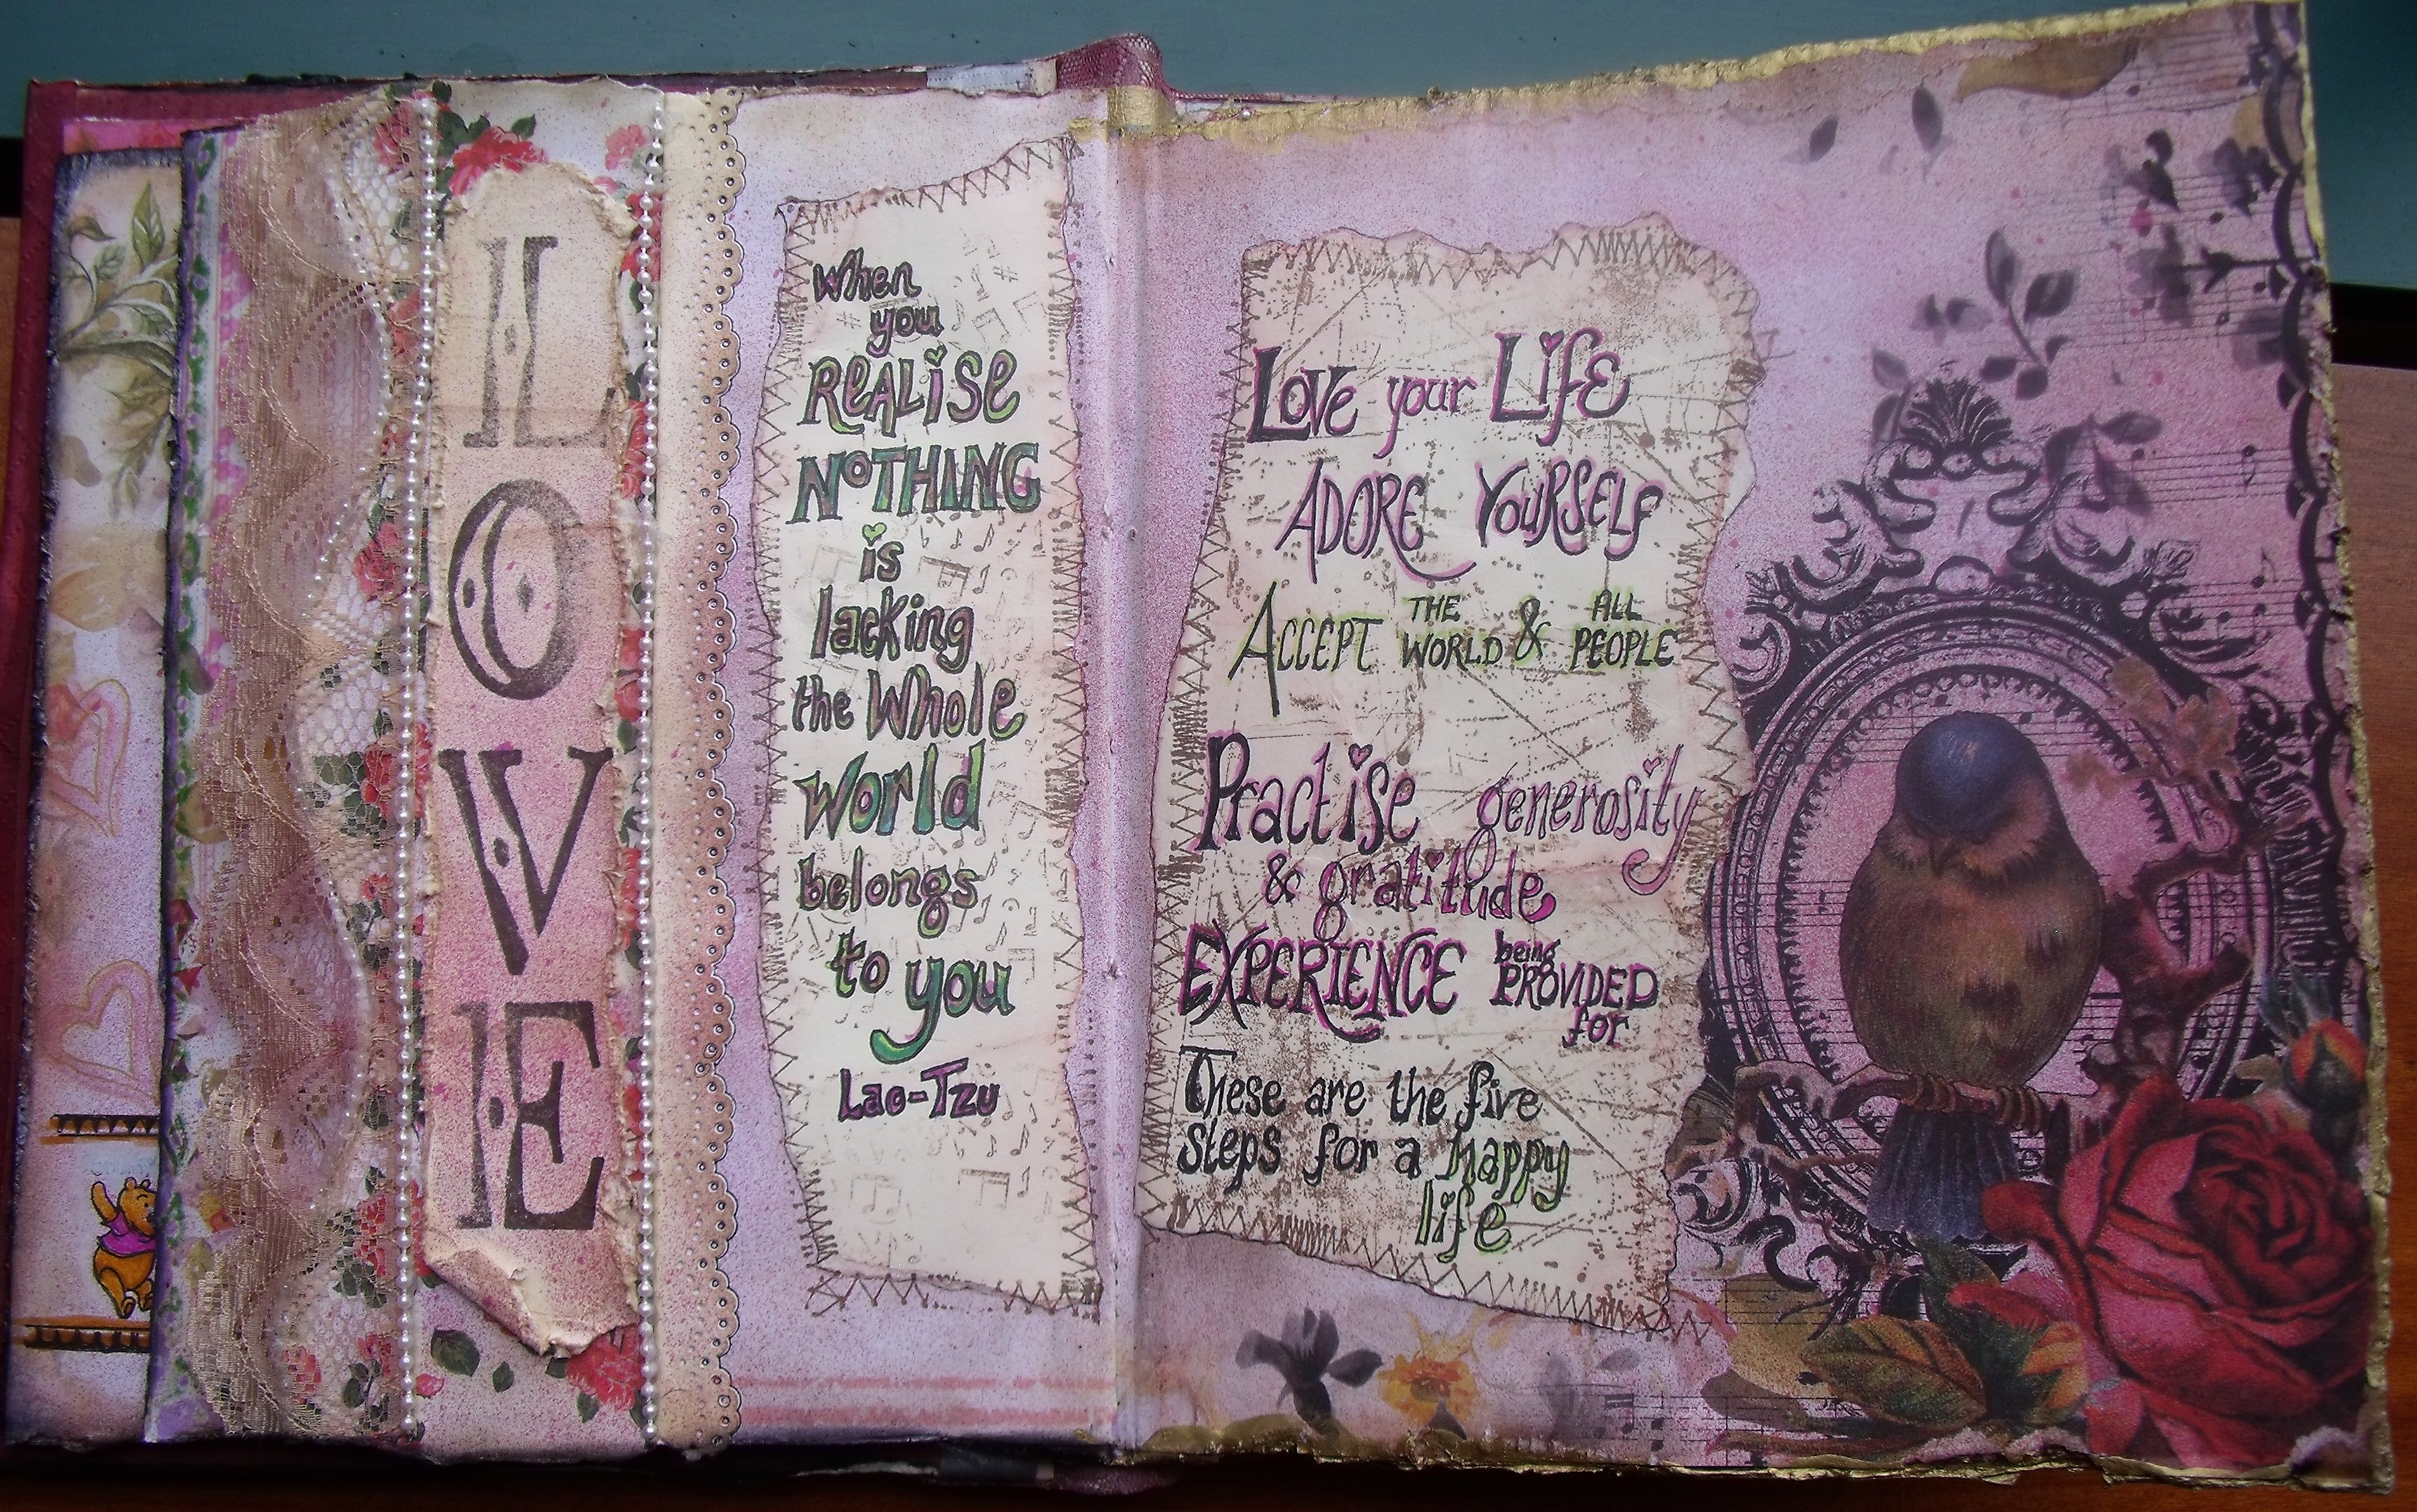 LOVE
When
you
REALiSE
NOTHING
is
lacking
the Whole
World
belongs
to you
Lao-Tzu
Love your Life
ADORE YOURSELF
ACCEPT THE WORLD & ALL PEOPLE
Practise generosity
& gratitude
EXPERIENCE being PROVIDED
for
These are the five
steps for a happy
life